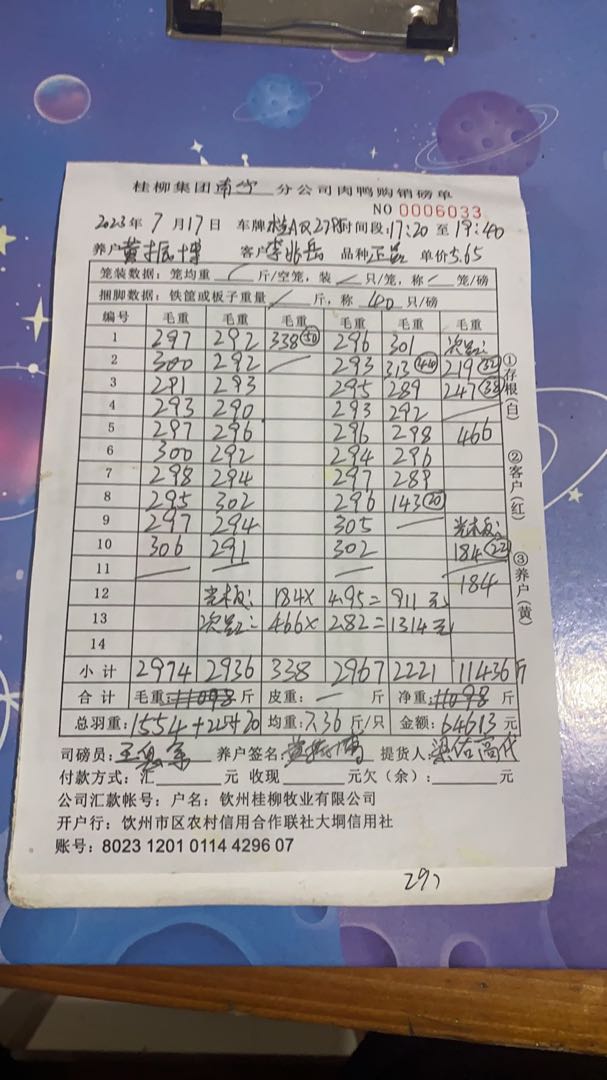 桂柳集团南宁分公司肉鸭购销磅单
NO 0006033
2023年7月17日 车牌桂A 时间段:17:20至19:40
养户黄振博 客户李兆岳 品种正品 单价5.65
笼装数据: 笼均重 / 斤/空笼, 装 / 只/笼, 称 / 笼/磅
捆脚数据: 铁筐或板子重量 / 斤, 称 40 只/磅
编号 毛重 毛重 毛重 毛重 毛重 毛重
1 297 292 338(50) 296 301 次品:
2 300 292 — 293 313(44) 219(32)
3 281 293 295 289 247(38)
4 293 290 293 292 —
5 297 296 296 298 466
6 300 292 294 296
7 298 294 297 289
8 295 302 296 143(20)
9 297 294 305 —
10 306 291 302 184(22)
11 — — — 184
12 184× 4.95= 911元
13 次品:466× 2.82=1314元
14
小计 2974 2936 338 2967 2221 11436斤
合计 毛重:11098斤 皮重: — 斤 净重:11098斤
总羽重:1554 均重:7.36斤/只 金额:64613元
司磅员: 养户签名: 提货人:
付款方式:汇 元 收现 元欠(余): 元
公司汇款帐号: 户名: 钦州桂柳牧业有限公司
开户行: 钦州市区农村信用合作联社大垌信用社
账号: 8023 1201 0114 4296 07
①存根(白)
②客户(红)
③养户(黄)